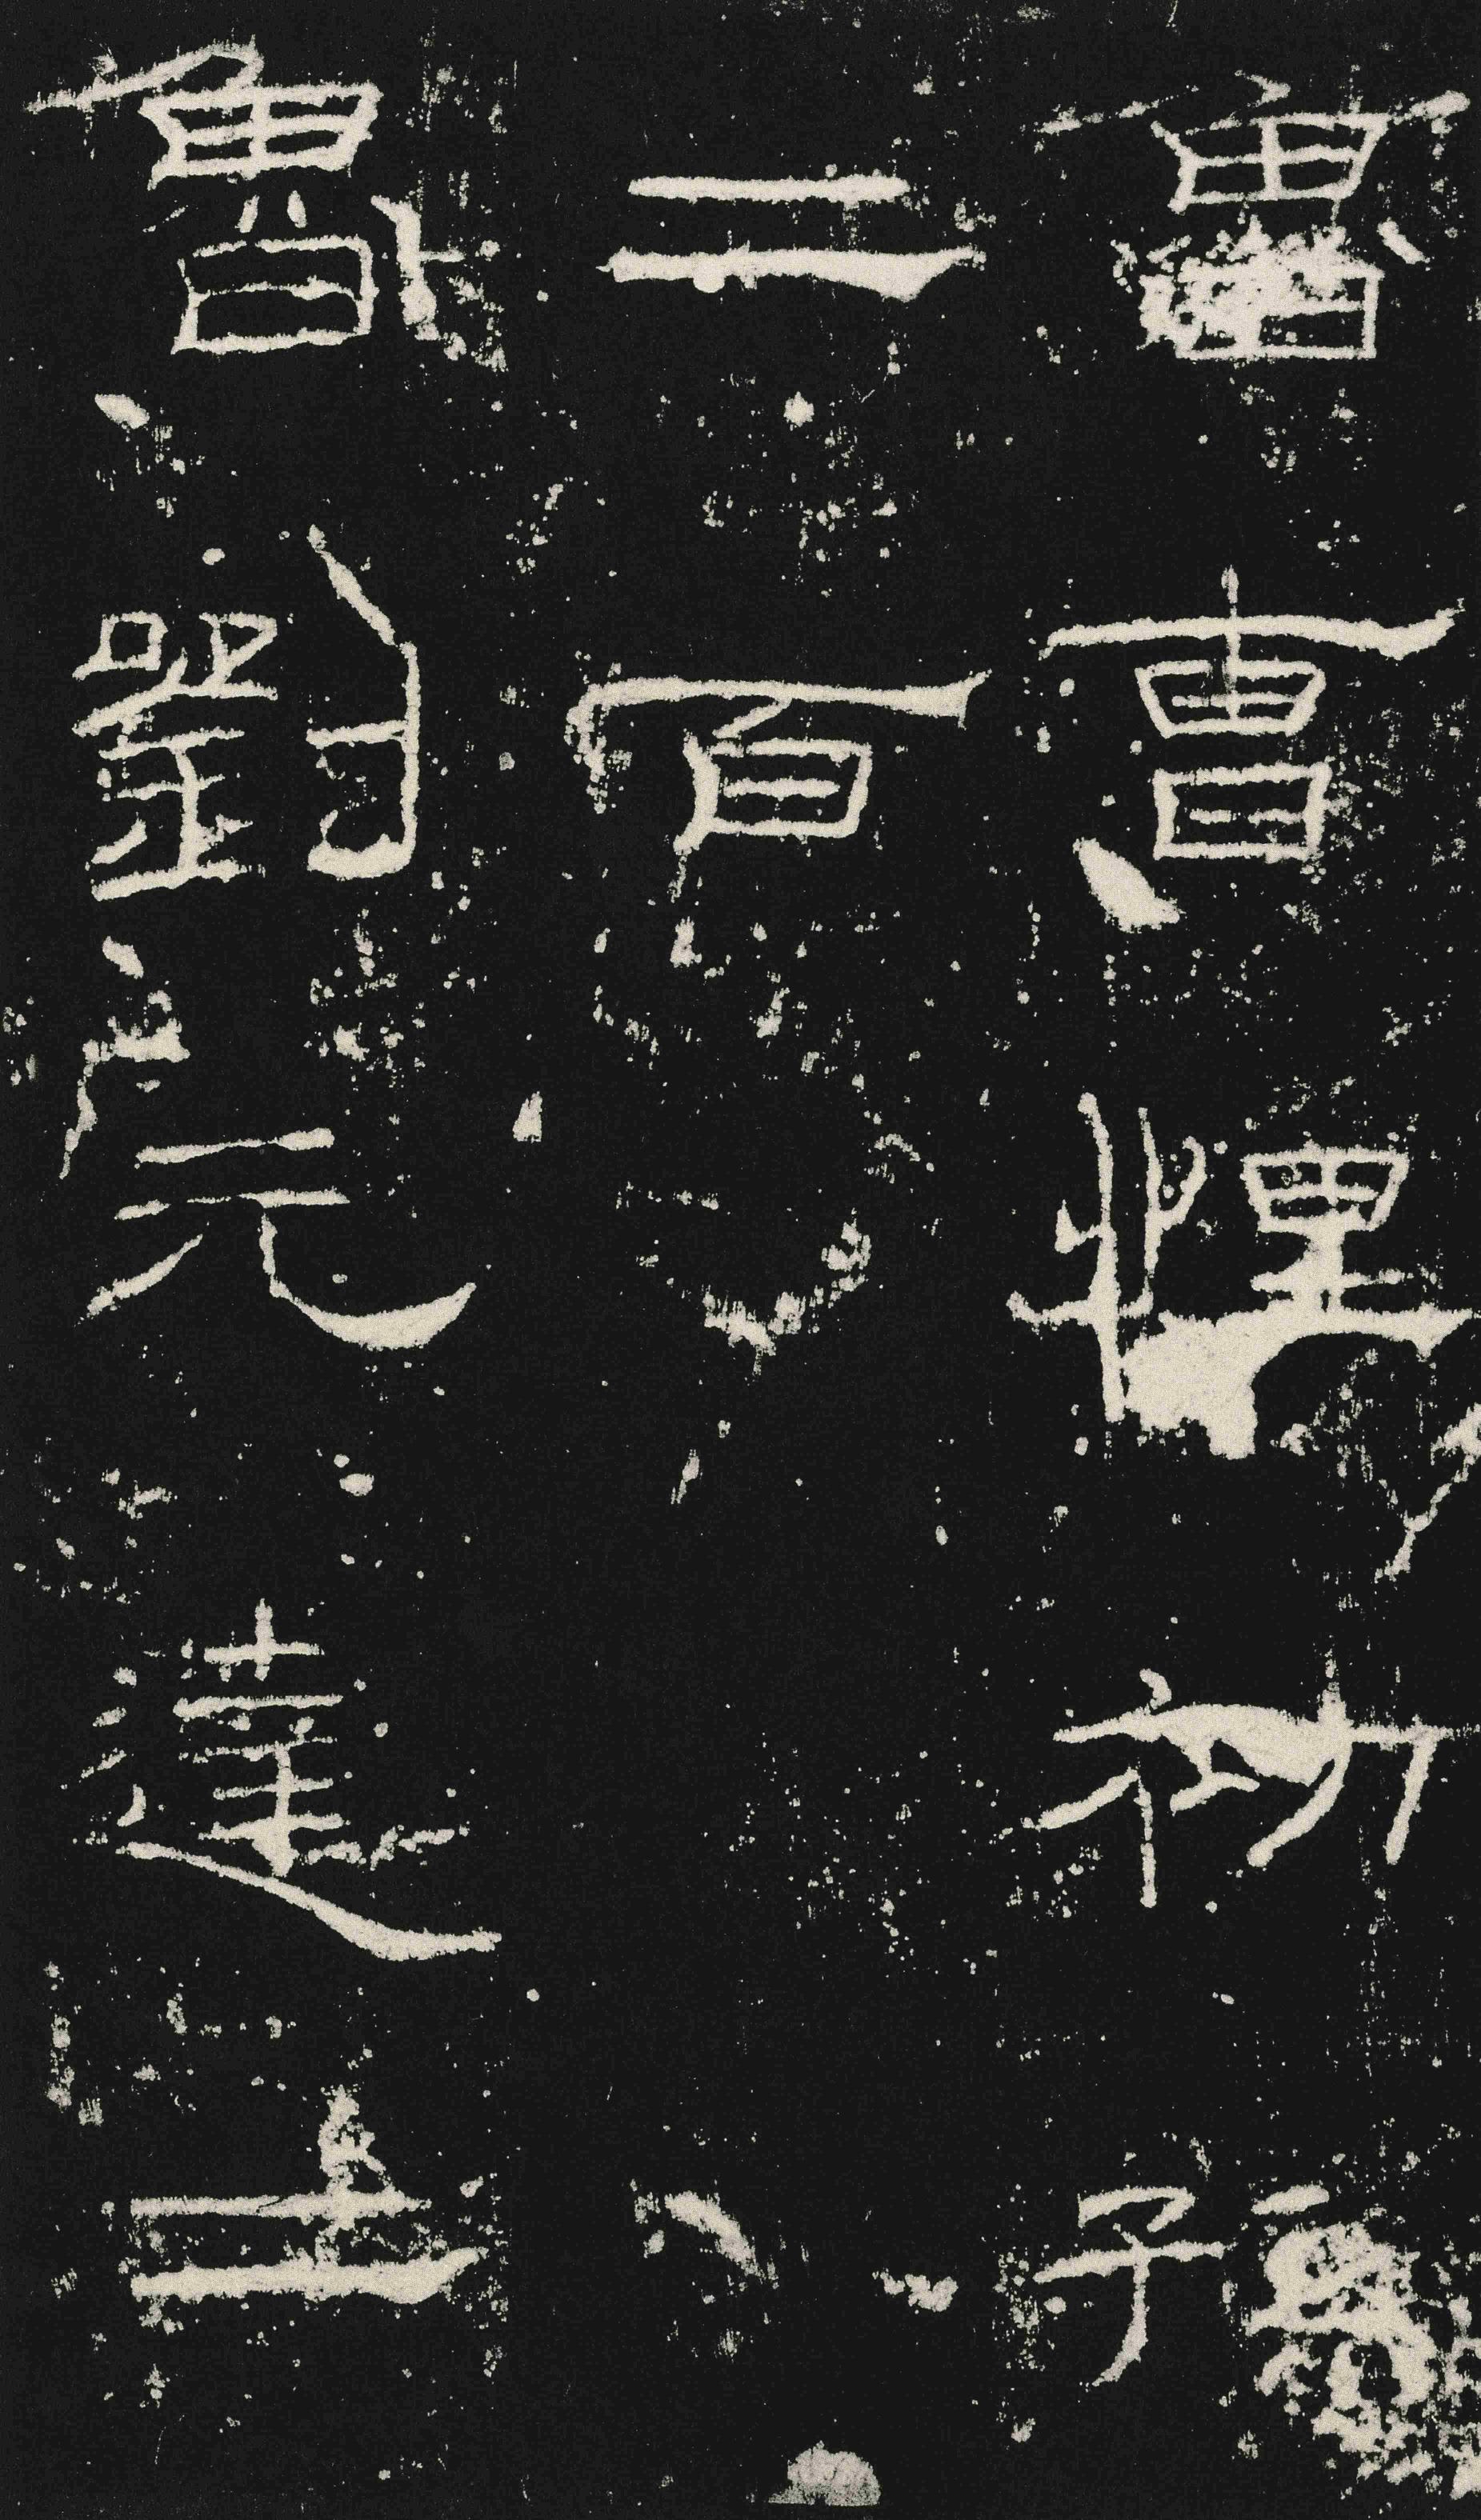 魯曹悝初孫
二百
魯劉元達二